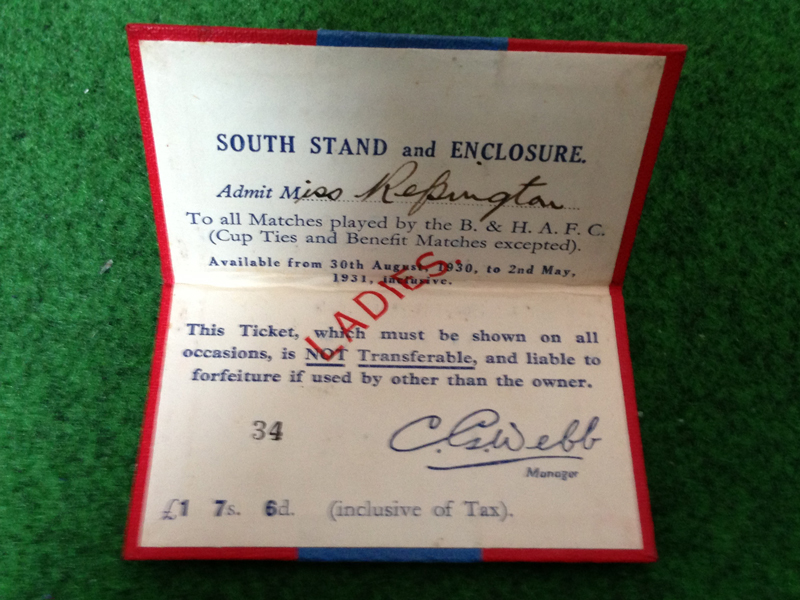 SOUTH STAND and ENCLOSURE.
Admit Miss Repington
To all Matches played by the B. & H. A. F. C.
(Cup Ties and Benefit Matches excepted).
Available from 30th August, 1930, to 2nd May,
1931, inclusive.
LADIES.
This Ticket, which must be shown on all
occasions, is NOT Transferable, and liable to
forfeiture if used by other than the owner.
34
C. G. Webb
Manager
£1 7s. 6d. (inclusive of Tax).